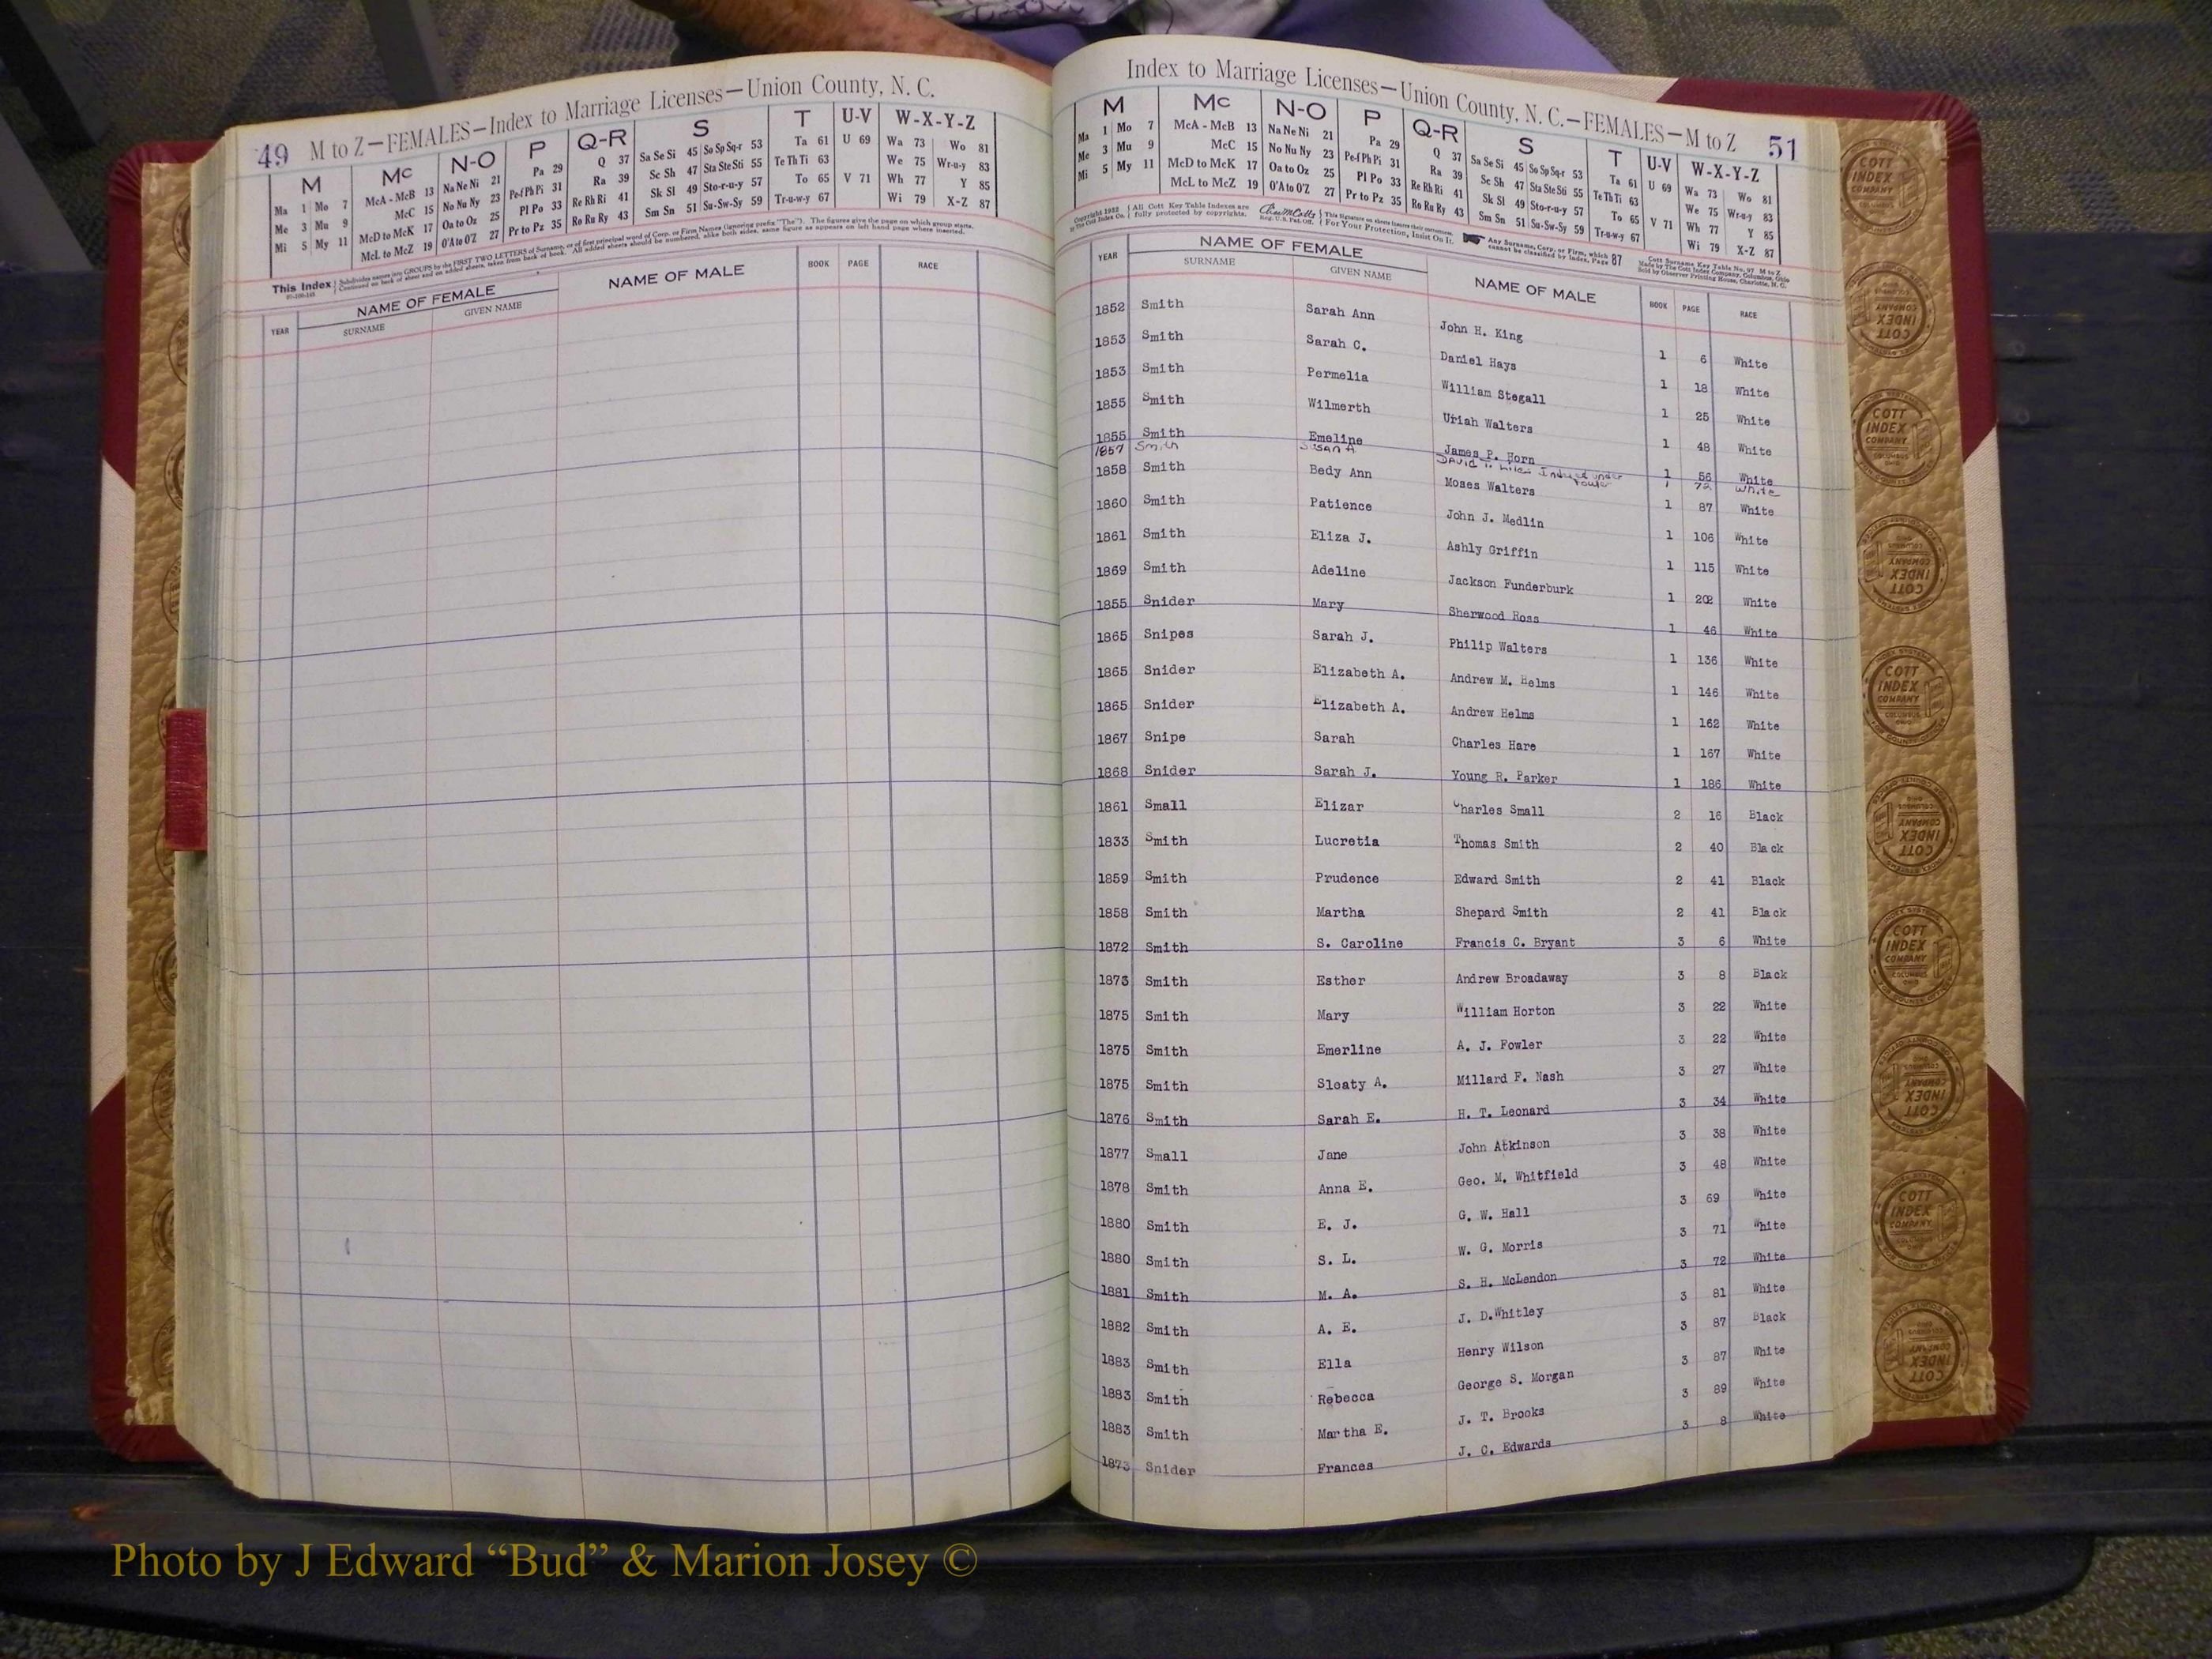 49 M to Z—FEMALES—Index to Marriage Licenses—Union County, N. C.
M Mc N-O P Q-R S T U-V W-X-Y-Z
Ma 1 Mo 7 McA - McB 13 Na Ne Ni 21 Pa 29 Q 37 Sa Se Si 45 So Sp Sq-r 53 Ta 61 U 69 Wa 73 Wo 81
Me 3 Mu 9 McC 15 No Nu Ny 23 Pe-f Ph Pi 31 Ra 39 Sc Sh 47 Sta Ste Sti 55 Te Th Ti 63 We 75 Wr-u-y 83
Mi 5 My 11 McD to McK 17 Oa to Oz 25 Pl Po 33 Re Rh Ri 41 Sk Sl 49 Sto-r-u-y 57 To 65 V 71 Wh 77 Y 85
McL to McZ 19 O'A to O'Z 27 Pr to Pz 35 Ro Ru Ry 43 Sm Sn 51 Su-Sw-Sy 59 Tr-u-w-y 67 Wi 79 X-Z 87
This Index Subdivides names into GROUPS by the FIRST TWO LETTERS of Surname, or of first principal word of Corp. or Firm Names (ignoring prefix "The"). The figures give the page on which group starts.
Continued on back of sheet and on added sheets, taken from back of book. All added sheets should be numbered, alike both sides, same figure as appears on left hand page where inserted.
YEAR NAME OF FEMALE NAME OF MALE BOOK PAGE RACE
SURNAME GIVEN NAME
Index to Marriage Licenses—Union County, N. C.—FEMALES—M to Z 51
M Mc N-O P Q-R S T U-V W-X-Y-Z
Ma 1 Mo 7 McA - McB 13 Na Ne Ni 21 Pa 29 Q 37 Sa Se Si 45 So Sp Sq-r 53 Ta 61 U 69 Wa 73 Wo 81
Me 3 Mu 9 McC 15 No Nu Ny 23 Pe-f Ph Pi 31 Ra 39 Sc Sh 47 Sta Ste Sti 55 Te Th Ti 63 We 75 Wr-u-y 83
Mi 5 My 11 McD to McK 17 Oa to Oz 25 Pl Po 33 Re Rh Ri 41 Sk Sl 49 Sto-r-u-y 57 To 65 V 71 Wh 77 Y 85
McL to McZ 19 O'A to O'Z 27 Pr to Pz 35 Ro Ru Ry 43 Sm Sn 51 Su-Sw-Sy 59 Tr-u-w-y 67 Wi 79 X-Z 87
Copyright 1932 All Cott Key Table Indexes are This signature on sheets Any Surname, Corp. or Firm, which Cott Surname Key Table No. 97 M to Z
by The Cott Index Co. fully protected by copyrights. Reg. U.S. Pat. Off. For Your Protection, Insist On It. cannot be classified by index, Page 87 Made by The Cott Index Company, Columbus, Ohio
Sold by Observer Printing House, Charlotte, N. C.
YEAR NAME OF FEMALE NAME OF MALE BOOK PAGE RACE
SURNAME GIVEN NAME
1852 Smith Sarah Ann John H. King 1 6 White
1853 Smith Sarah C. Daniel Hays 1 18 White
1853 Smith Permelia William Stegall 1 25 White
1855 Smith Wilmerth Uriah Walters 1 48 White
1855 Smith Emeline James P. Horn 1 56 White
1857 Smith Susan A David Indexed under Fowler 1 72 White
1858 Smith Bedy Ann Moses Walters 1 87 White
1860 Smith Patience John J. Medlin 1 106 White
1861 Smith Eliza J. Ashly Griffin 1 115 White
1869 Smith Adeline Jackson Funderburk 1 202 White
1855 Snider Mary Sherwood Ross 1 46 White
1865 Snipes Sarah J. Philip Walters 1 136 White
1865 Snider Elizabeth A. Andrew M. Helms 1 146 White
1865 Snider Elizabeth A. Andrew Helms 1 162 White
1867 Snipe Sarah Charles Hare 1 167 White
1868 Snider Sarah J. Young R. Parker 1 186 White
1861 Small Elizar Charles Small 2 16 Black
1833 Smith Lucretia Thomas Smith 2 40 Black
1859 Smith Prudence Edward Smith 2 41 Black
1858 Smith Martha Shepard Smith 2 41 Black
1872 Smith S. Caroline Francis C. Bryant 3 6 White
1873 Smith Esther Andrew Broadaway 3 8 Black
1875 Smith Mary William Horton 3 22 White
1875 Smith Emerline A. J. Fowler 3 22 White
1875 Smith Sleaty A. Millard F. Nash 3 27 White
1876 Smith Sarah E. H. T. Leonard 3 34 White
1877 Small Jane John Atkinson 3 38 White
1878 Smith Anna E. Geo. M. Whitfield 3 48 White
1880 Smith E. J. G. W. Hall 3 69 White
1880 Smith S. L. W. G. Morris 3 71 White
1881 Smith M. A. S. H. McLendon 3 72 White
1882 Smith A. E. J. D.Whitley 3 81 White
1883 Smith Ella Henry Wilson 3 87 Black
1883 Smith Rebecca George S. Morgan 3 87 White
1883 Smith Martha E. J. T. Brooks 3 89 White
1873 Snider Frances J. C. Edwards 3 8 White
COTT INDEX COMPANY
Photo by J Edward “Bud” & Marion Josey ©